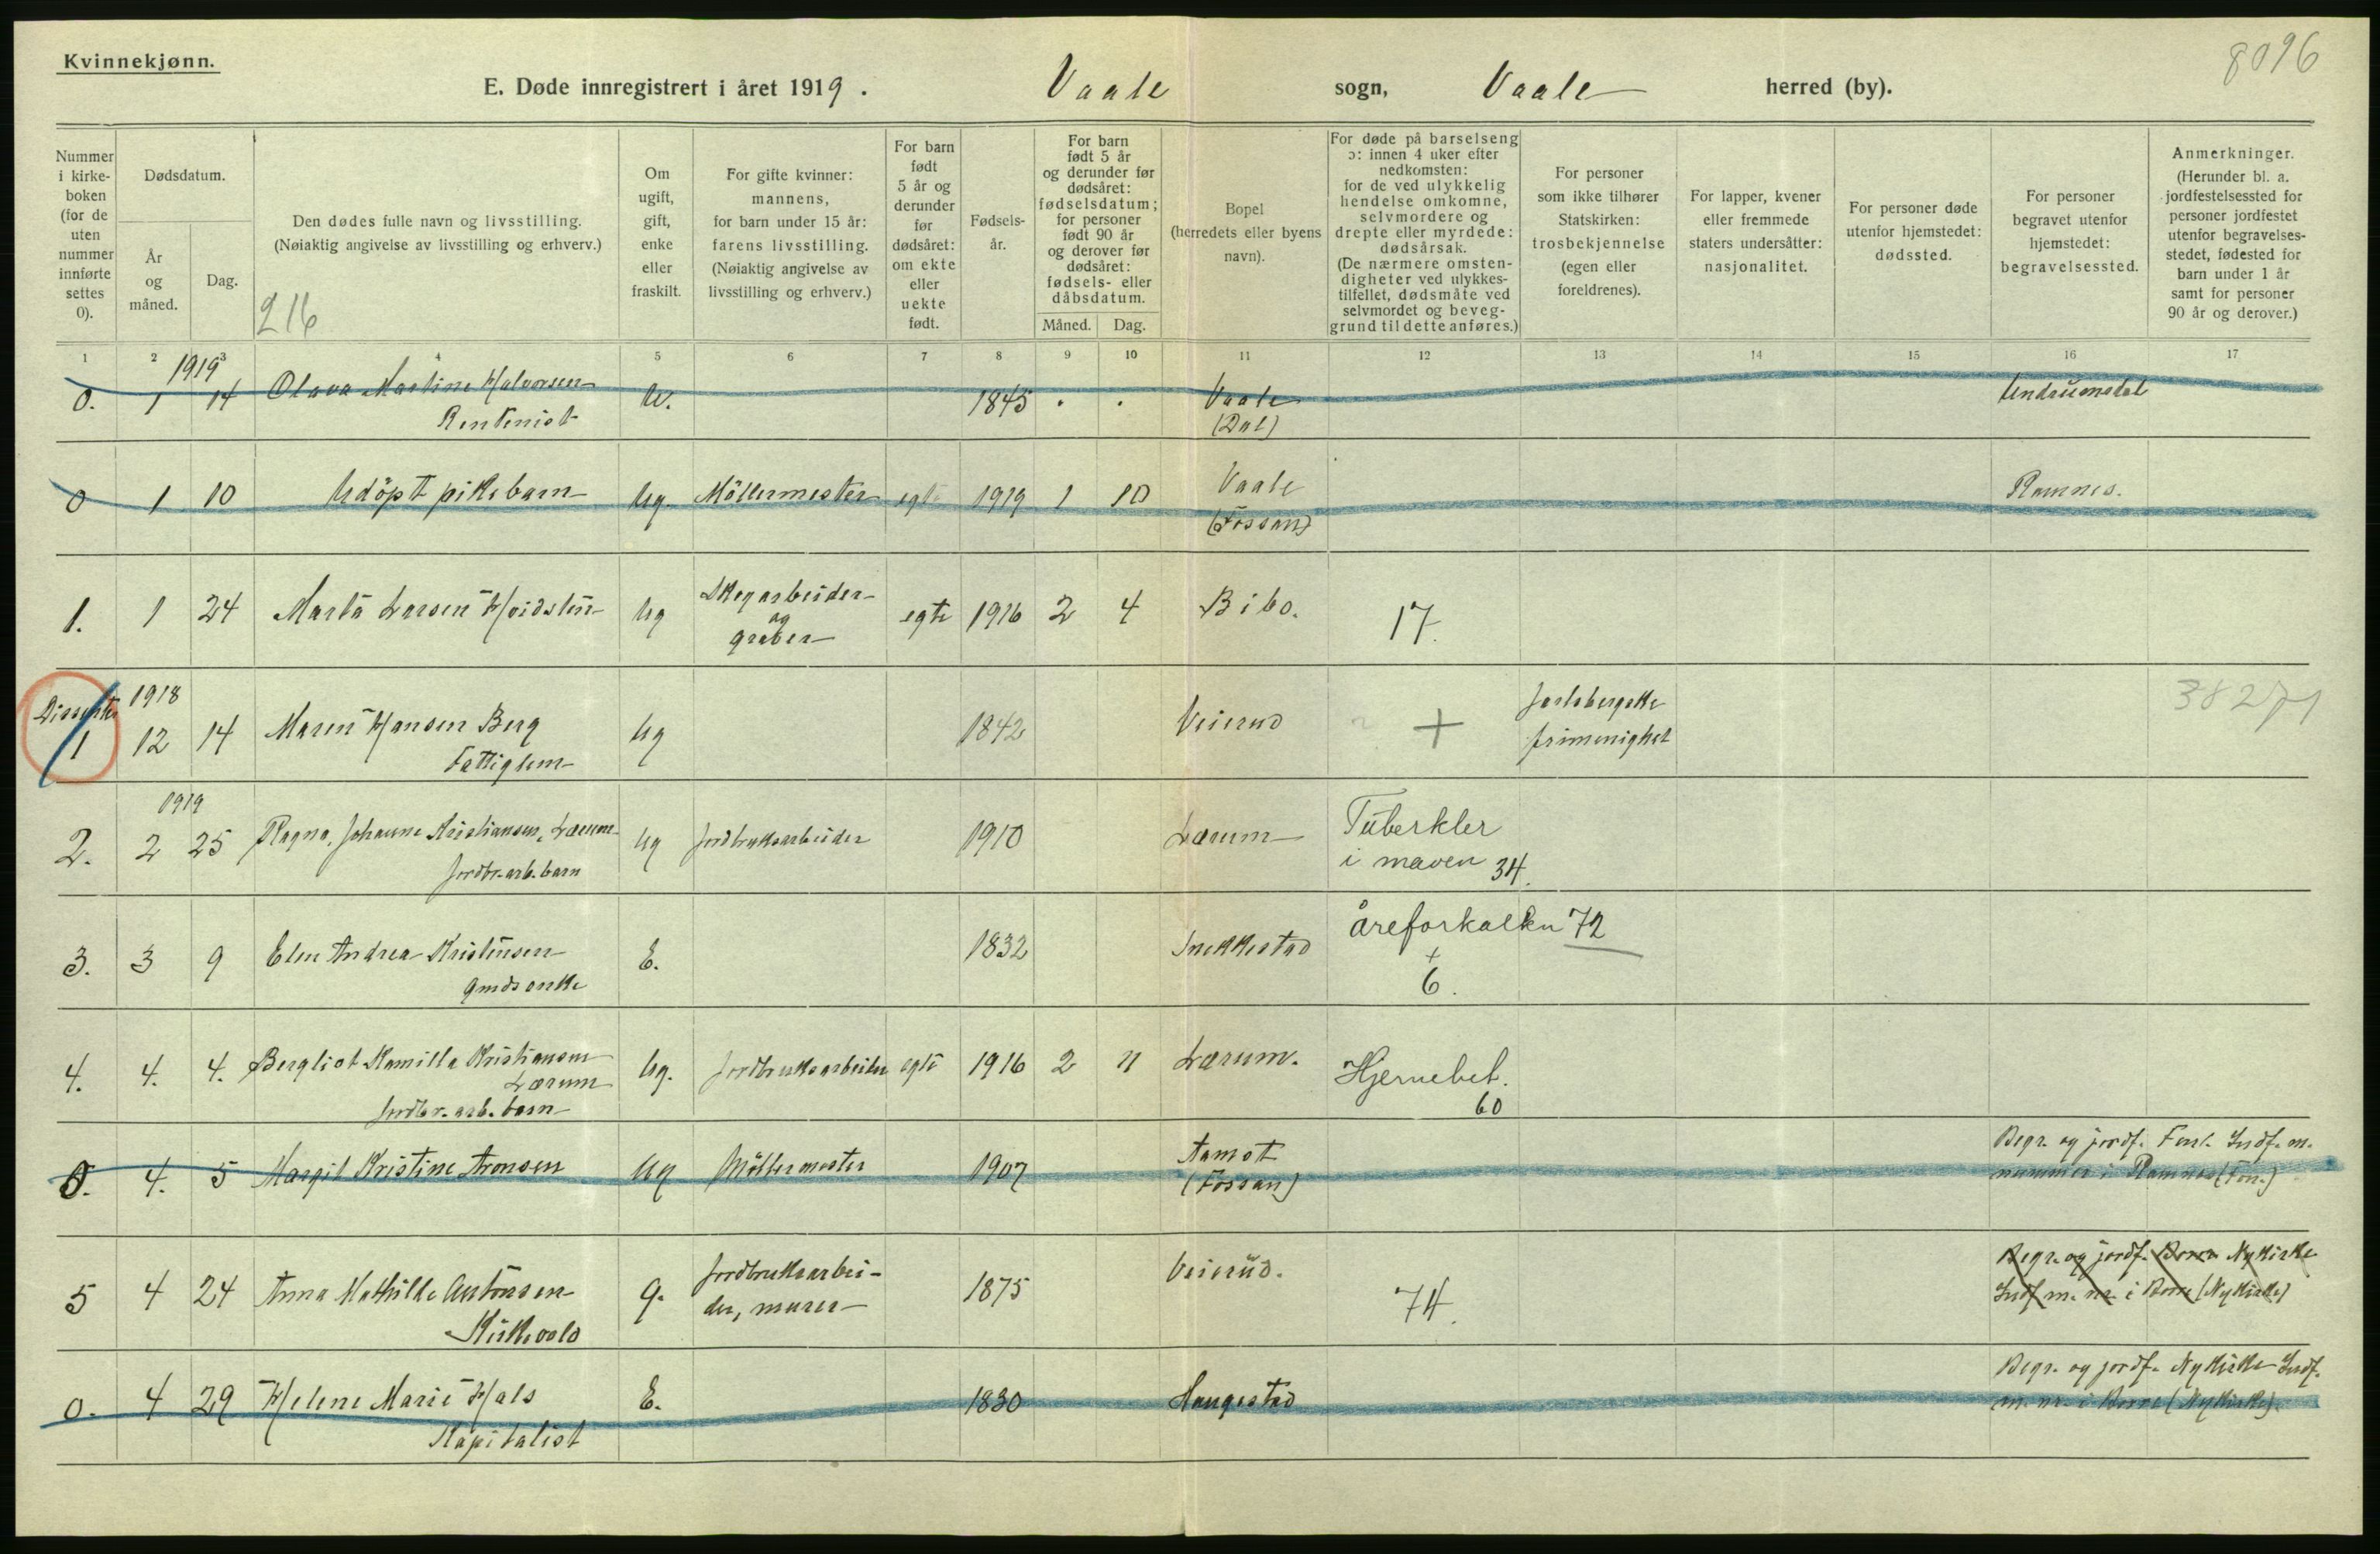 Kvinnekjønn.
8096
E. Døde innregistrert i året 1919. Vaale sogn, Vaale herred (by).
Nummer i kirke-boken (for de uten nummer innførte settes 0).
Dødsdatum.
År og måned.
Dag.
Den dødes fulle navn og livsstilling.
(Nøiaktig angivelse av livsstilling og erhverv.)
216
Om ugift, gift, enke eller fraskilt.
For gifte kvinner: mannens, for barn under 15 år: farens livsstilling. (Nøiaktig angivelse av livsstilling og erhverv.)
For barn født 5 år og derunder før dødsåret: om ekte eller uekte født.
Fødsels-år.
For barn født 5 år og derunder før dødsåret: fødselsdatum; for personer født 90 år og derover før dødsåret: fødsels- eller dåbsdatum.
Måned. Dag.
Bopel (herredets eller byens navn).
For døde på barselseng ɔ: innen 4 uker efter nedkomsten: for de ved ulykkelig hendelse omkomne, selvmordere og drepte eller myrdede: dødsårsak. (De nærmere omsten-digheter ved ulykkes-tilfellet, dødsmåte ved selvmordet og beveg-grund til dette anføres.)
For personer som ikke tilhører Statskirken: trosbekjennelse (egen eller foreldrenes).
For lapper, kvener eller fremmede staters undersåtter: nasjonalitet.
For personer døde utenfor hjemstedet: dødssted.
For personer begravet utenfor hjemstedet: begravelsessted.
Anmerkninger. (Herunder bl. a. jordfestelsessted for personer jordfestet utenfor begravelses-stedet, fødested for barn under 1 år samt for personer 90 år og derover.)
1 2 3 4 5 6 7 8 9 10 11 12 13 14 15 16 17
1919
0. 1 14 Olava Martine Halvorsen U. 1845 . . Vaale Undrumsdal
Rentenist (Dal)
0 1 10 Udöpt pikebarn Ug. Möllermester egte 1919 1 10 Vaale Ramnes.
(Fossan)
1. 1 24 Marta Larsen Hoidsten Ug Skogarbeider egte 1916 2 4 Bibo. 17.
og
graver
Dissenter 1918
1 12 14 Maren Hansen Berg Ug 1842 Veierud + Jarlsbergske 38271
Fattiglem frimenighet
1919
2. 2 25 Ragna Johanne Kristiansen, Lærum Ug Jordbruksarbeider 1910 Lærum Tuberkler
Jordbr. arb. barn i maven 34.
3. 3 9 Elen Andrea Kristensen E. 1832 Snekkestad åreforkalkn 72
Gmds enke +
6.
4. 4. 4. Bergliot Kamilla Kristiansen Ug. Jordbruksarbeider egte 1916 2 11 Lærum. Hjernebet.
Lærum 60
Jordbr. arb. barn
0. 4. 5 Margit Kristine Aronsen Ug Möllermester 1907 Aamot Begr. og jordf. Fon. Indf. m.
(Fossan) nummer i Ramnes (Fon.)
5 4 24 Anna Mathilde Antonsen G. Jordbruksarbei- 1875 Veierud. 74. Begr. og jordf. Borre Nykirke
Kirkevold der, murer Indf m. nr. i Borre (Nykirke)
0. 4 29 Helene Marie Hals E. 1830 Haugestad Begr. og jordf. Nykirke Indf.
Kapitalist m. nr. i Borre (Nykirke).